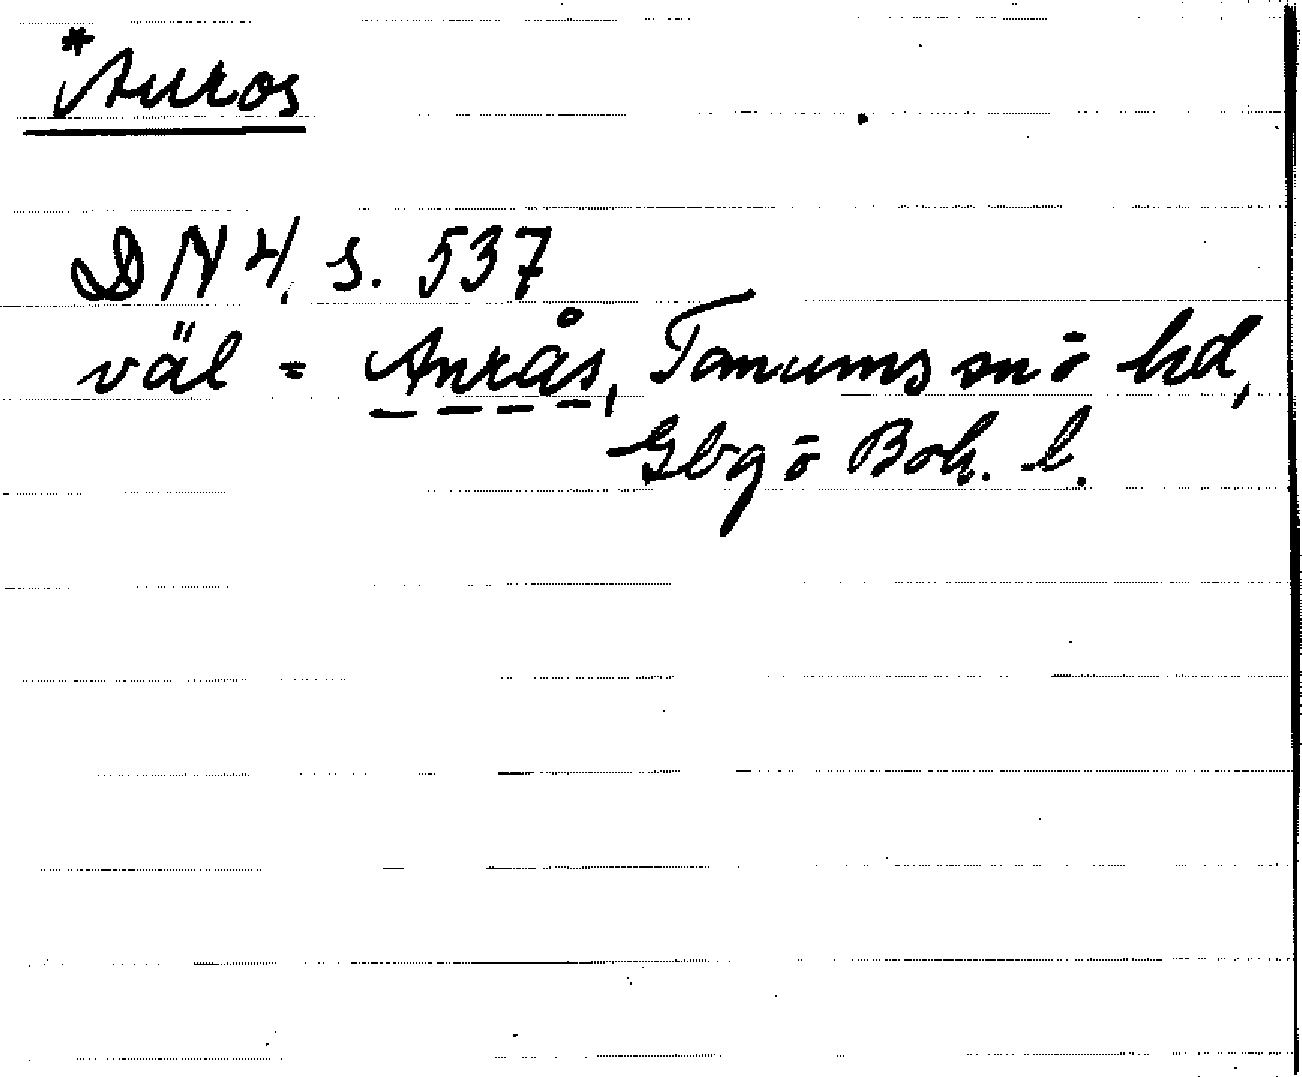 *Anros
DN 4, s. 537
väl = Anrås, Tanums sn o hd,
Gbg o Boh. l.